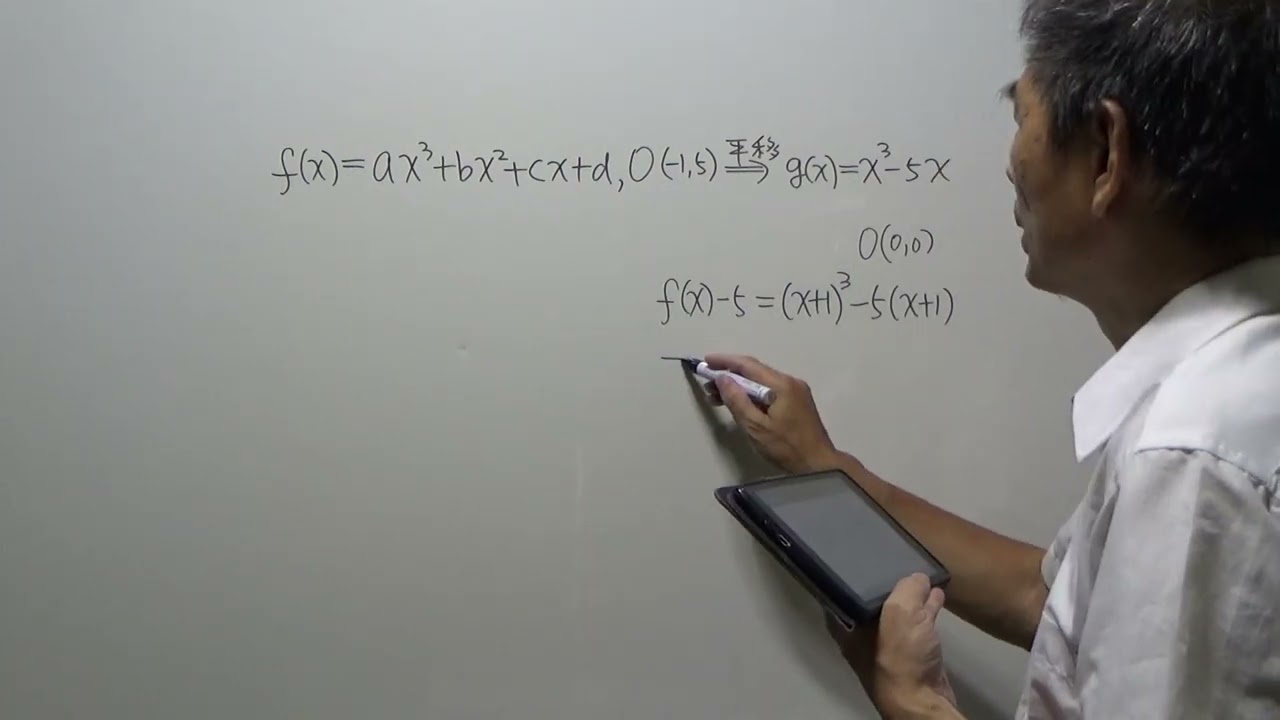 f(x)=ax³+bx²+cx+d, O(-1,5) 平移⇒ g(x)=x³-5x
O(0,0)
f(x)-5=(x+1)³-5(x+1)